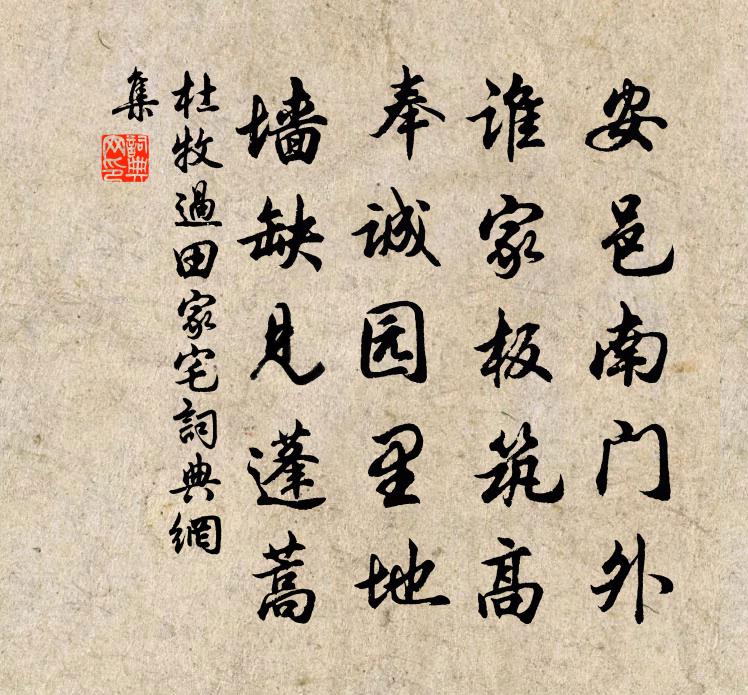 安邑南门外
谁家板筑高
奉诚园里地
墙缺见蓬蒿
杜牧過田家宅詞典網
集
詞典網印